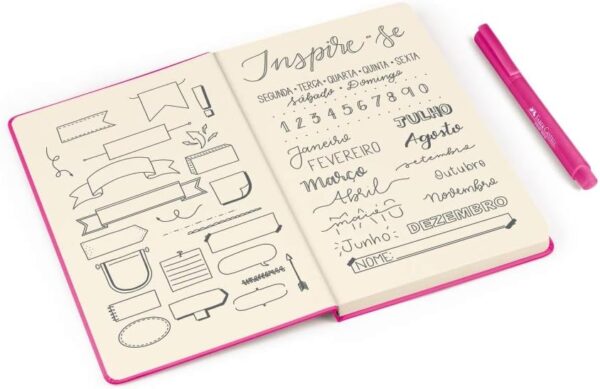 Inspire-se
SEGUNDA • TERÇA • QUARTA • QUINTA • SEXTA
Sábado • Domingo
1 2 3 4 5 6 7 8 9 0
Janeiro
FEVEREIRO
Março
Abril
maio
Junho
JULHO
Agosto
setembro
Outubro
Novembro
DEZEMBRO
NOME:
FABER-CASTELL